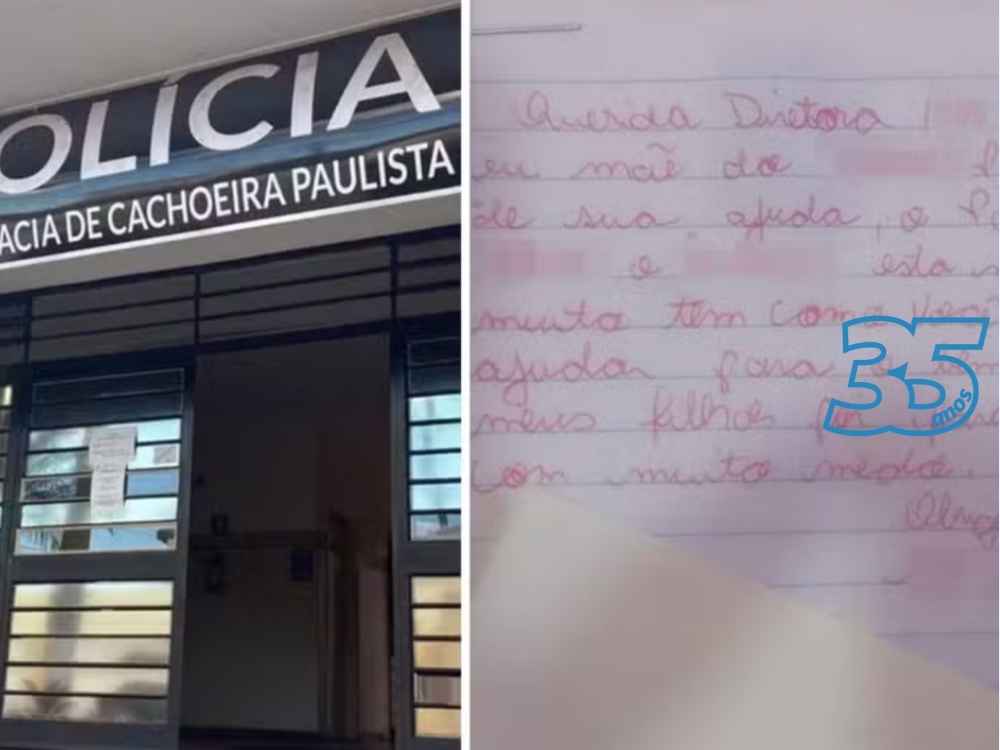 OLÍCIA
ACIA DE CACHOEIRA PAULISTA
Querida Diretora
eu mãe do
de sua ajuda, o
e esta
muito tem como
ajudar para
meus filhos por
com muito medo.
35
anos